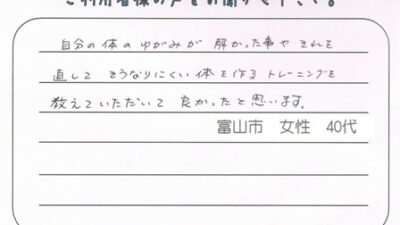 ご利用者様の声をお聞かせ下さい。
自分の体のゆがみが 解かった事や それを
直して そうなりにくい体を作る トレーニングを
教えていただいて 良かったと思います。
富山市 女性 40代